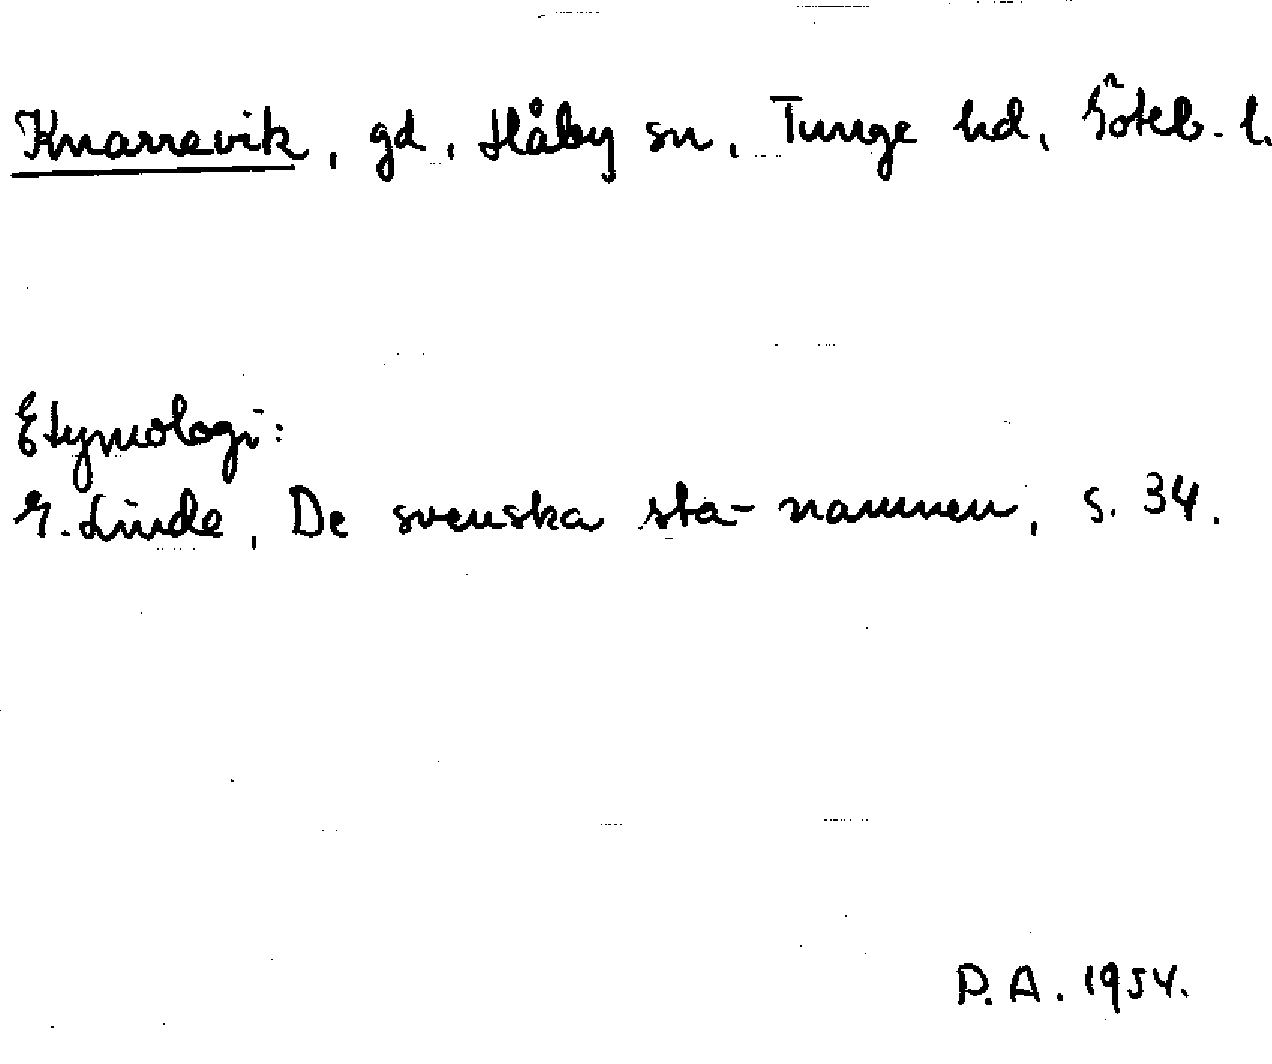 Knarrevik, gd, Håby sn, Tunge hd, Göteb. l.
Etymologi:
G. Linde, De svenska sta-namnen, s. 34.
P.A. 1954.